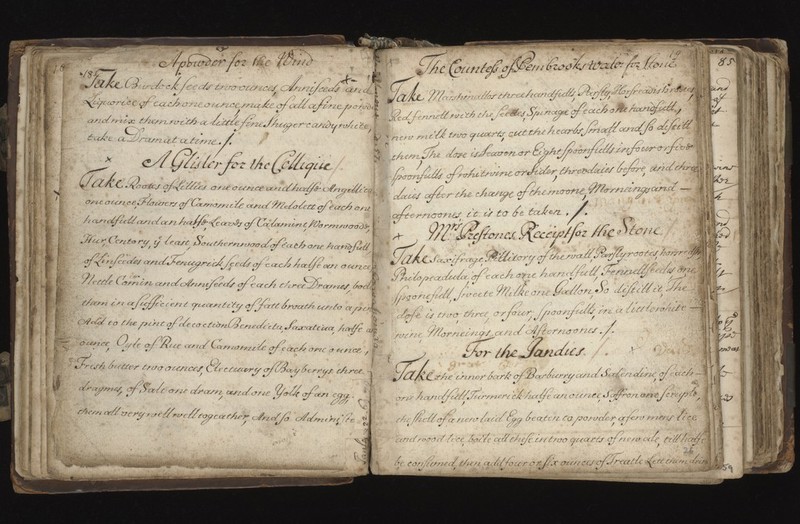 A powder for the Wind
184
Take Burdock seeds two ounces, Anniseeds and
Liquorice of each one ounce, make of all a fine powder
and mix them with a little fine Shuger candy white,
take a Dram at a time ./.
A Glister for the Collique /.
Take Roots of Lillies one ounce and halfe Angellica
one ounce, Flowers of Camomile and Melolett of each one
handfull and an halfe Leaves of Calamint, Wormwoode,
Centory, ye least, Southernwood of each one handfull
of Linseedes and Fenugrick seeds of each halfe an ounce
Nettle Comin and Anniseeds of each three Drames, boil
them in a sufficient quantity of fatt broath unto a pint
Add to the pint of decoction Benedicta Laxativa, halfe an
ounce, Oyle of Rue and Camomile of each one ounce,
Fresh butter two ounces, Electuary of Bayberrys three
dragmes, of Sale one dram, and one Yolk of an egg
them all very well well togeather, And so Administer
19
The Countess of Pembrooks water for
Take Marshmallos three handfulls, Parsly,
Red fennill with the seedes, Spinage of each one handfull,
new milk two quarts, cutt the hearbs small and so distill
them, The dose is Seaven or Eight spoonfulls in four or five
spoonfulls of white wine or sider, three daies before, and three
daies after the change of the moone, Morneing and —
afternoones, it is to be taken ./.
Mrs Prestones Receipt for the Stone
Take Saxifrage Pillitory of the wall Parsly rootes,
Philopendula of each one handfull, Fennell seedes one
spoonefull, Sweete Milke one Gallon, So distill it, The
dose is two, three, or four, spoonfulls in a little white —
wine, Morneings, and Afternoones ./.
For the Jandies /.
Take the inner bark of Barburry and Salendine, of each —
one handfull, Turmerick halfe an ounce, Saffron one scruple,
the shell of a new laid Egg beaten to powder, a few hens lice
and wood lice, boile all these in two quarts of new ale, till halfe
be consumed, then add four or six ounces of Treacle Lett them
85
59